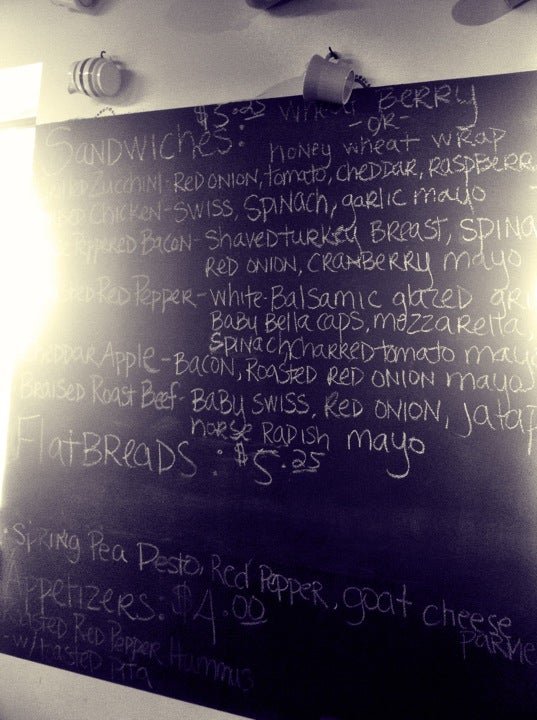 $5.25 wheat BERRY
-OR-
SANDWICHES: honey wheat wrap
Zucchini-RED ONION, tomato, cheddar, RASPBERR
CHICKEN-SWISS, SPINACH, garlic mayo
Peppered Bacon-Shaved turkey BREAST, SPINA
RED ONION, CRANBERRY mayo
Red Pepper-white-Balsamic glazed
BABY Bella caps, mozzarella,
spinach, charred tomato mayo
Cheddar Apple-BACON, ROASTED RED ONION mayo
Braised Roast Beef-BABY SWISS, RED ONION,
horse RADISH mayo
FlatBREADS: $5.25
• SPRING Pea Pesto, Red Pepper, goat cheese
PARME
Appetizers: $4.00
Red Pepper Hummus
-w/ Pita